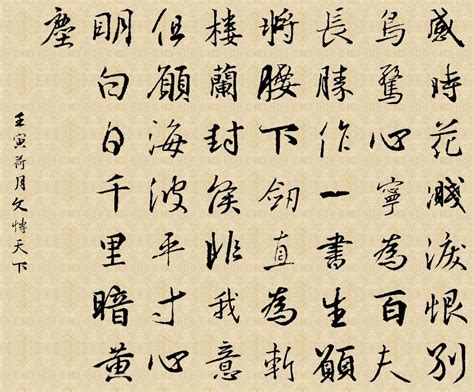 感時花濺淚恨別
鳥驚心寧為百夫
長勝作一書生願
將腰下劍直為斬
樓蘭封侯非我意
但願海波平寸心
明白日千里暗黄
塵
壬寅荷月文博天下